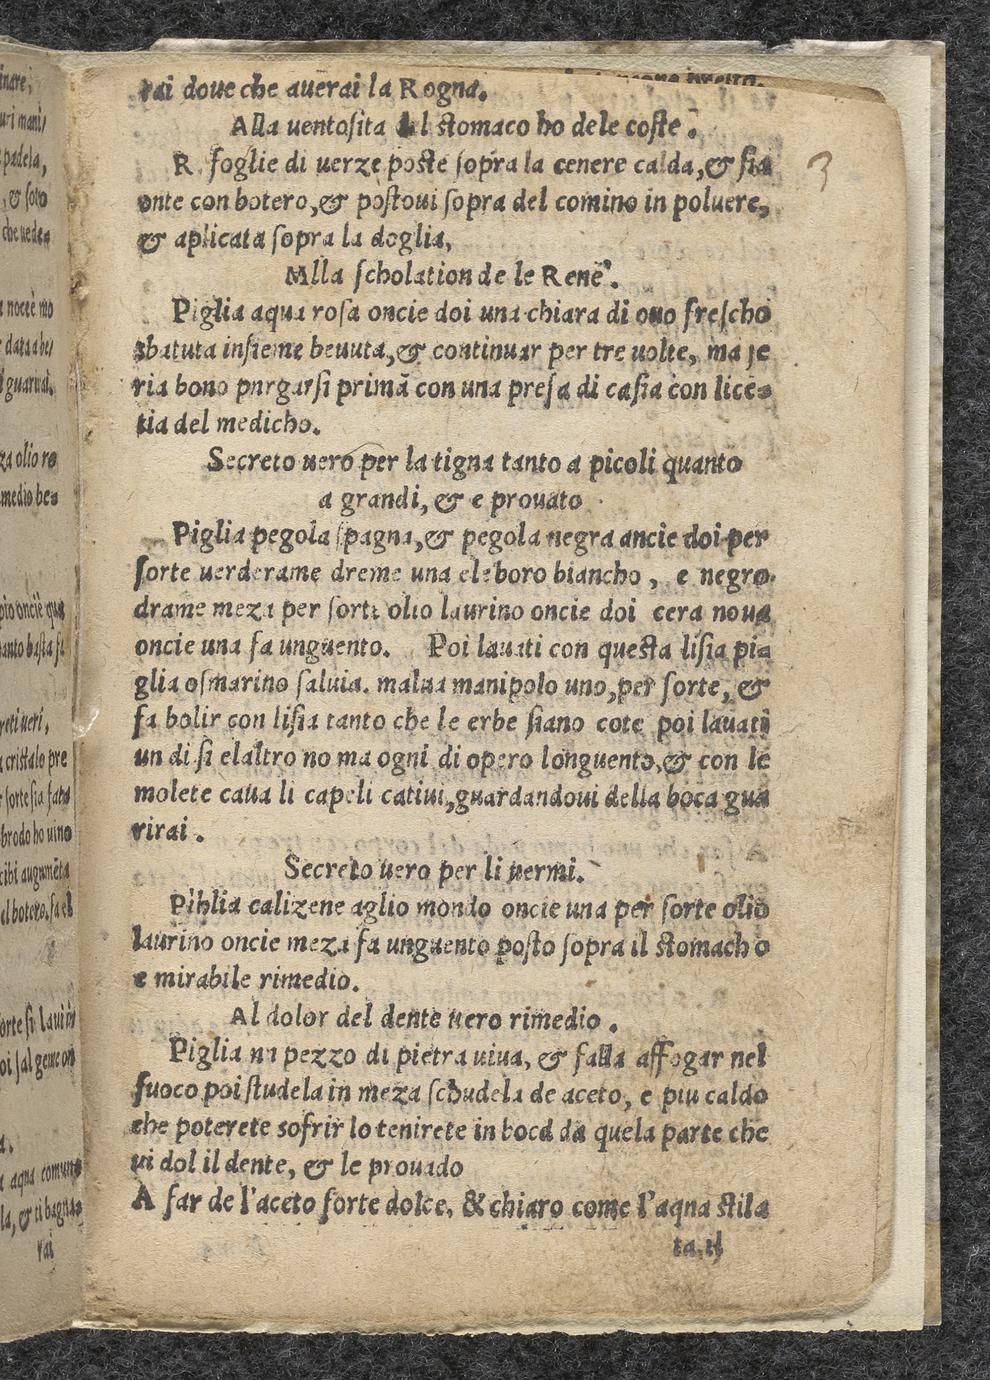 rai doue che auerai la Rogna.
Alla uentosita del stomaco ho dele coste.
R foglie di uerze poste sopra la cenere calda, & sia
onte con botero, & postoui sopra del comino in poluere,
& aplicata sopra la doglia,
Mlla scholation de le Rene.
Piglia aqua rosa oncie doi una chiara di ouo frescho
sbatuta insieme beuuta, & continuar per tre uolte, ma se
ria bono purgarsi primā con una presa di casia con lice=
tia del medicho.
Secreto uero per la tigna tanto a picoli quanto
a grandi, & e prouato
Piglia pegola spagna, & pegola negra ancie doi per
sorte uerderame dreme una eleboro biancho, e negro
drame meza per sorte olio laurino oncie doi cera noua
oncie una fa unguento. Poi lauati con questa lisia pia
glia osmarino saluia. malua manipolo uno, per sorte, &
fa bolir con lisia tanto che le erbe siano cote poi lauati
un di si elaltro no ma ogni di opero longuento, & con le
molete caua li capeli catiui, guardandoui della boca gua
rirai.
Secreto uero per li uermi.
Piblia calizene aglio mondo oncie una per sorte olio
laurino oncie meza fa unguento posto sopra il stomacho
e mirabile rimedio.
Al dolor del dente uero rimedio.
Piglia nn pezzo di pietra uiua, & falla affogar nel
fuoco poi studela in meza scudela de aceto, e piu caldo
che poterete sofrir lo tenirete in bocd da quela parte che
ui dol il dente, & le prouado
A far de l'aceto forte dolce, & chiaro come l'aqna stila
ta, il
3